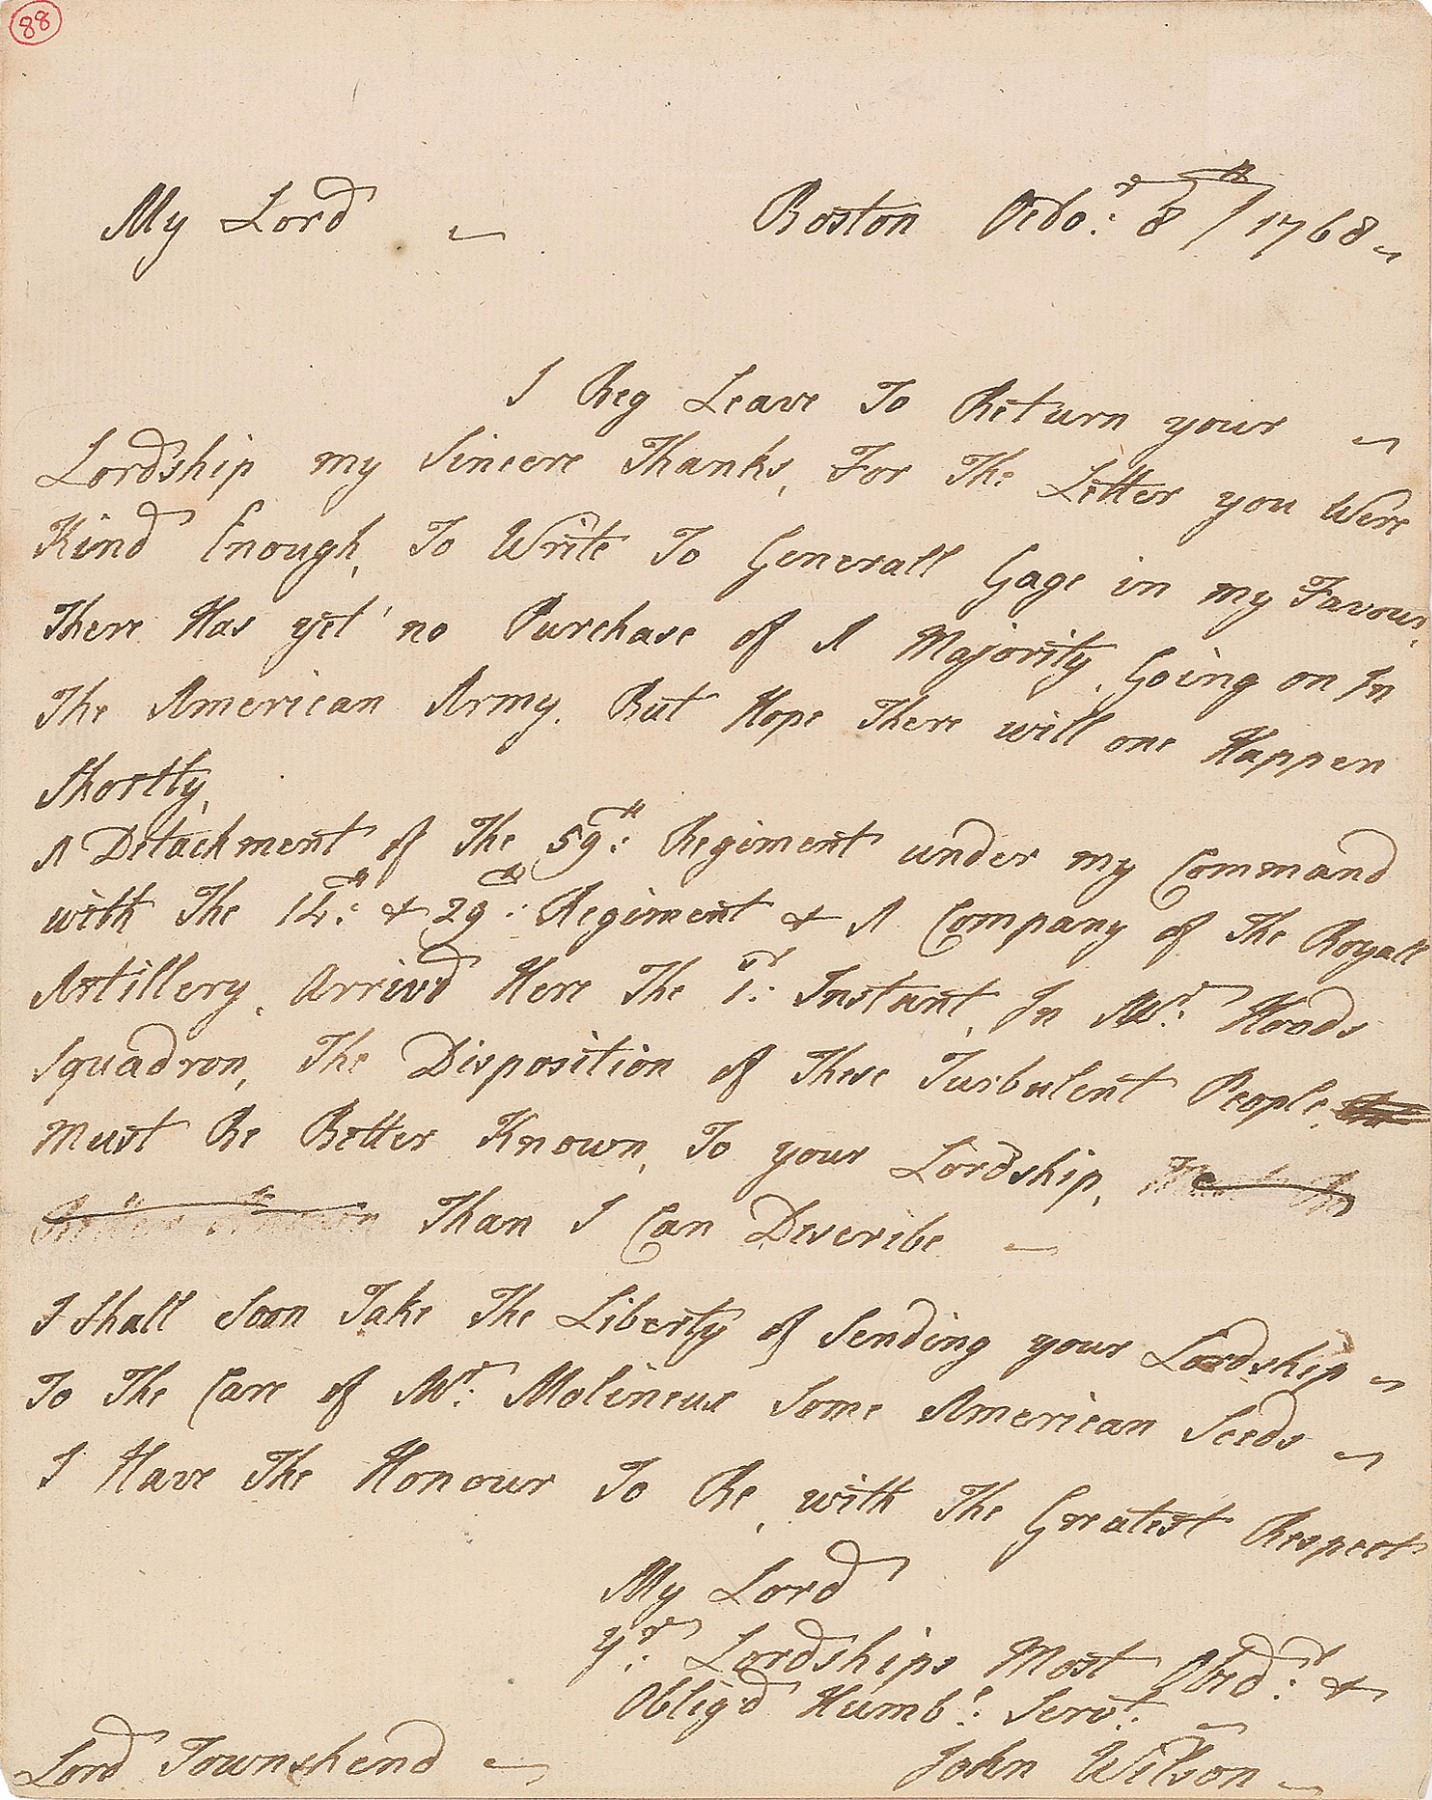 88
My Lord
Boston Octo:r 8th / 1768
I Beg Leave To Return your
Lordship my Sincere Thanks, For The Letter you Were
Kind Enough, To Write To Generall Gage in my Favour,
There Has yet no Purchase of A Majority, Going on In
The American Army. But Hope There will one Happen
Shortly,
A Detachment of The 59th: Regiment under my Command
with The 14th: & 29th: Regiment & A Company of The Royall
Artillery, Arrivd Here The 1st: Instant, In Mr: Hoods
Squadron, The Disposition of These Turbulent People,
Must Be Better Known, To your Lordship,
Than I Can Describe
I Shall Soon Take The Liberty of Sending your Lordship
To The Care of Mr: Molineux Some American Seeds
I Have The Honour To Be, with The Greatest Respect
My Lord
yr: Lordships Most Obed:t &
Oblig'd Humb:e Servt:
John Wilson
Lord Townshend